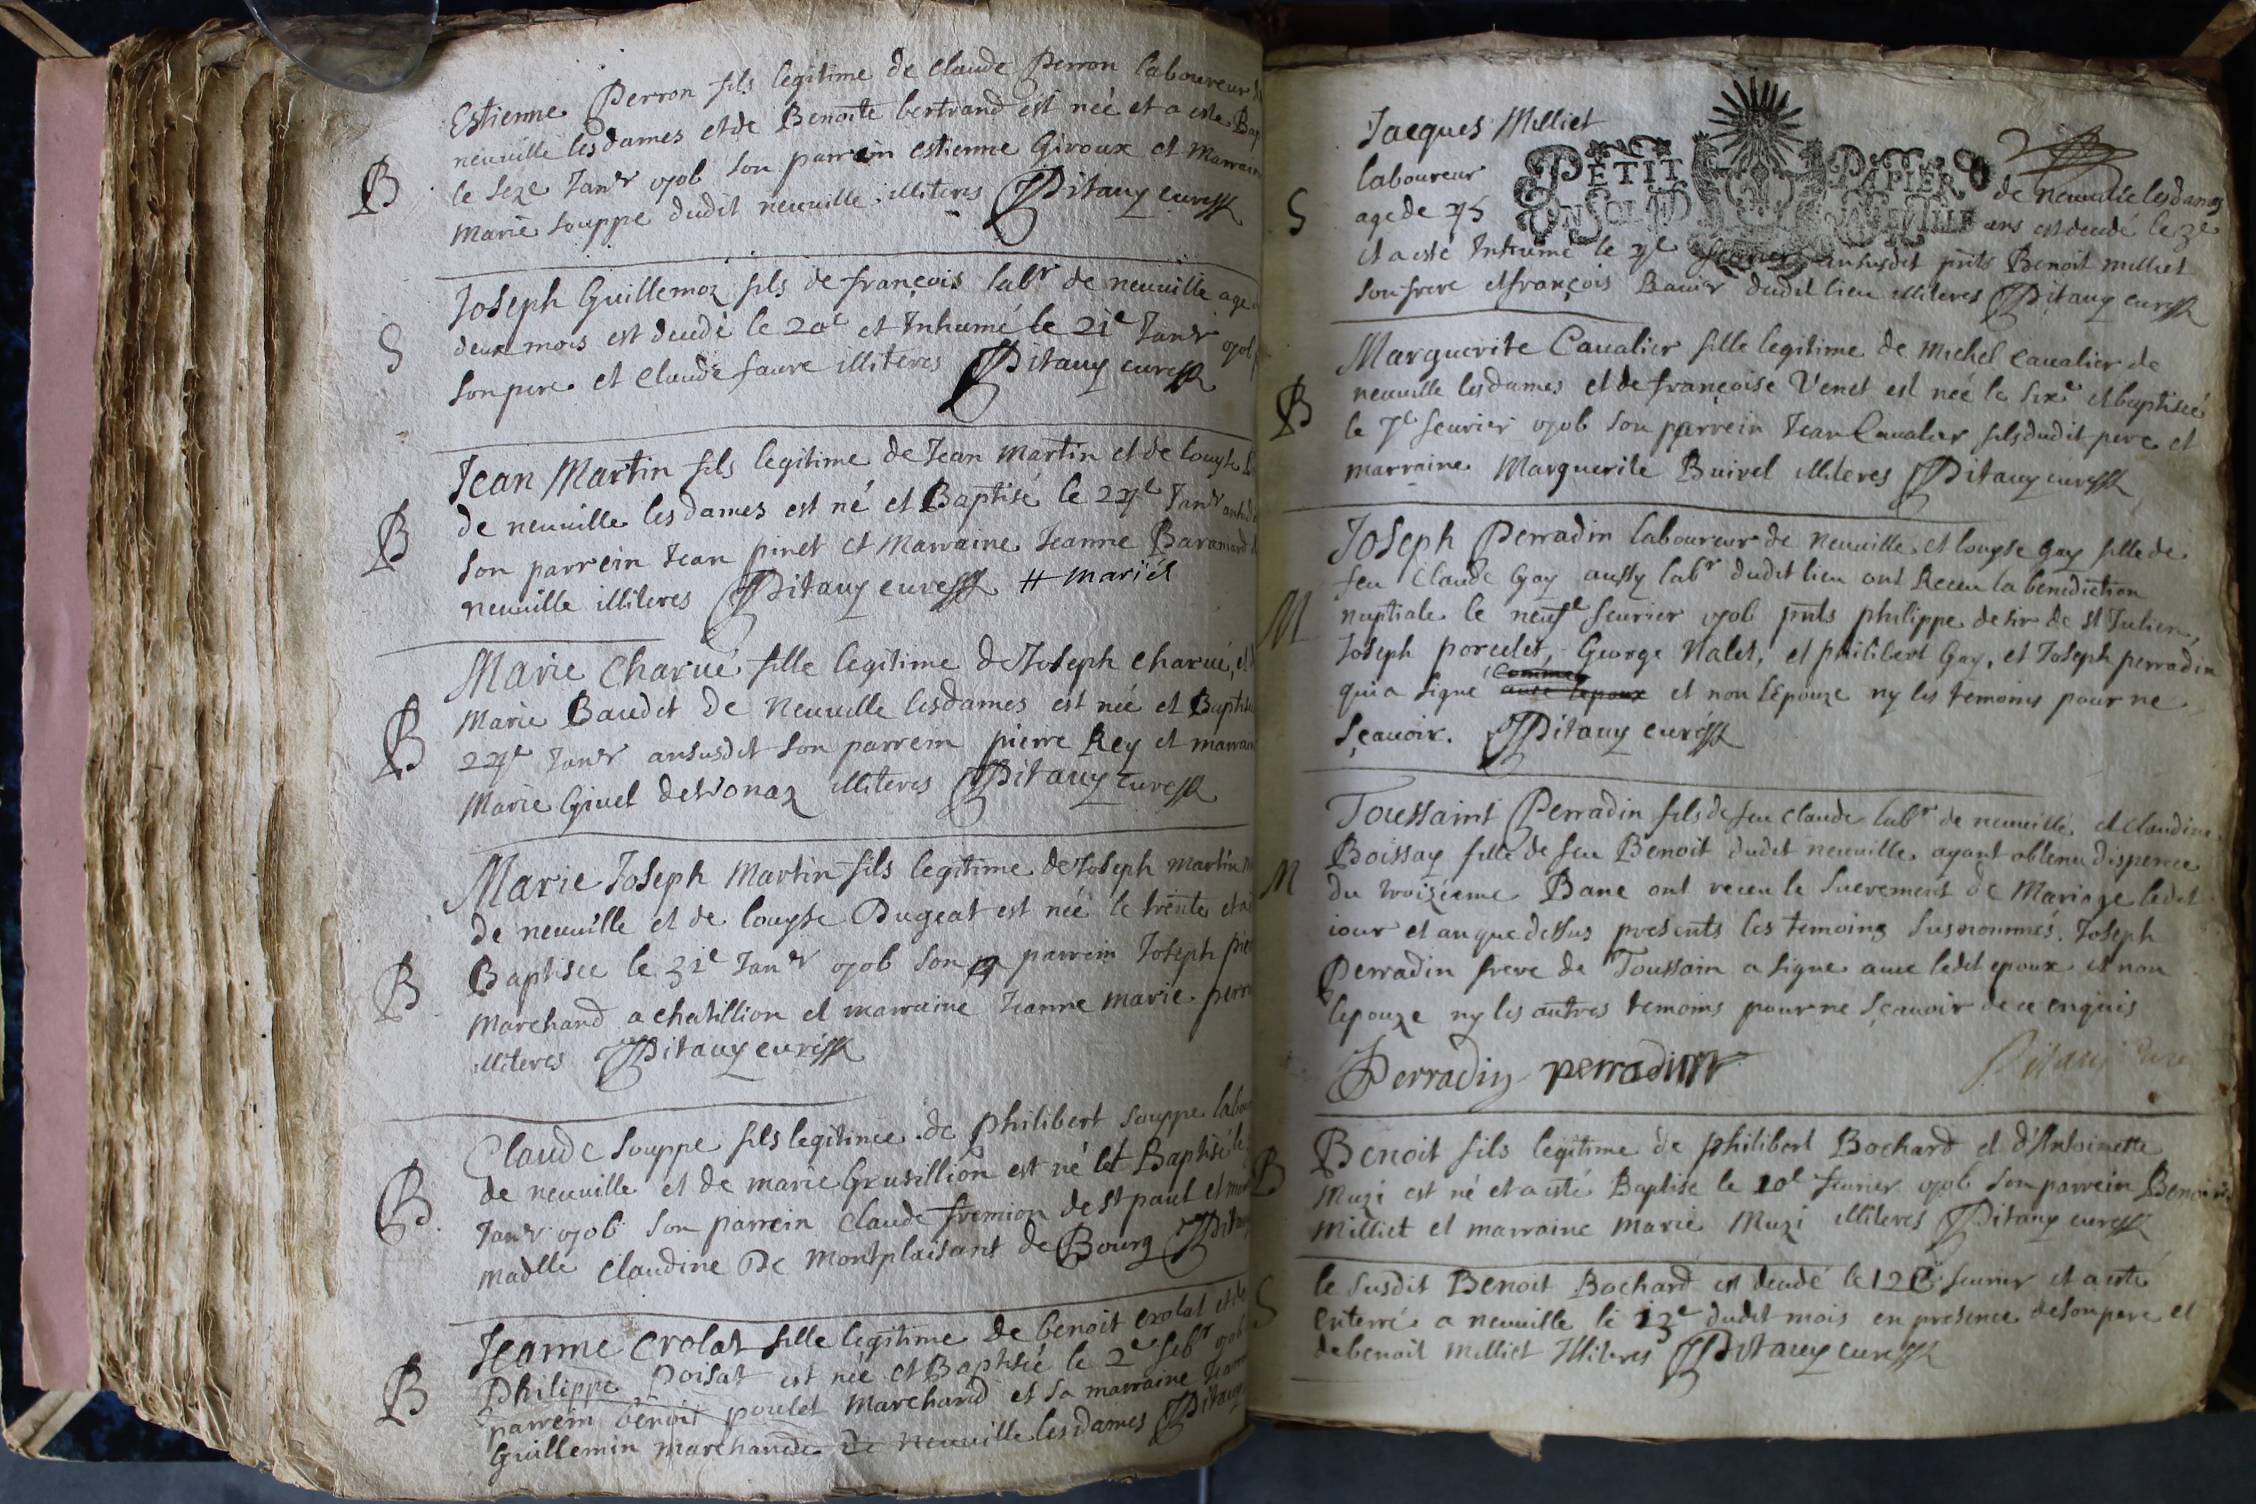 Estienne Perron fils legitime de claude Perron laboureur
neuuille lesdames et de Benoite bertrand est neé et a este Bap
B le seze Janr 1706 son parrein estienne Giroux et Marraine
marie souppe dudit neuuille illiteres Pitauy curé
Joseph Guillemoz fils de françois labr de neuuille age
S deux mois est decedé le 20e et Inhumé le 21e Janr 1706
son pere et claude faure illiteres Pitauy curé
Jean Martin fils legitime de Jean martin et de louyse
B de neuuille lesdames est né et Baptisé le 27e Janr
son parrein Jean pinet et Marraine Jeanne
neuuille illiteres Pitauy curé # mariés
Marie Charué fille legitime de Joseph charué, et
B Marie Baudet de Neuuille lesdames est neé et Baptisé
27e Janr ansusdit son parrein pierre Rey et marraine
Marie Givet de illiteres Pitauy curé
Marie Joseph Martin fils legitime de Joseph martin
de neuuille et de louyse Dugeat est neé le trente et a
B Baptisee le 31e Janr 1706 son parrein Joseph
Marchand a chatillion et marraine Jeanne marie perr
illiteres Pitauy curé
Claude souppe fils legitimee de philibert souppe labou
B de neuuille et de marie Grusillion est né et Baptisé le
Janr 1706 son parrein claude fremion de st paul et mar
madlle claudine De montplaisant de Bourg Pitauy
Jeanne Crolat fille legitime de benoit crolat et de
B Philippe Poisat est neé et Baptisée le 2e febr 1706
parrein benoit poulet Marchand et sa marraine Jeanne
Guillemin marchande de neuuille lesdames Pitauy
Jacques Milliet
PETIT PAPIER
laboureur de neuuille lesdames
S age de 75 ans est decedé le 3e
et a esté Inhumé le 4e feurier ansusdit pnts Benoit milliet
son frere et françois dudit lieu illiteres Pitauy curé
Marguerite Caualier fille legitime de michel caualier de
neuuille lesdames et de françoise Venet est neé le sixe et baptisée
B le 7e feurier 1706 son parrein Jean Caualier fils dudit pere et
marraine Marguerite Buirel illiteres Pitauy curé
Joseph Perradin laboureur de neuuille et louyse Gay fille de
feu Claude Gay aussy labr dudit lieu ont Receu la benediction
M nuptiale le neufe feurier 1706 pnts philippe de st Julien,
Joseph porcelet, George Nalet, et philibert Gay, et Joseph perradin
qui a signe comme auec lepoux et non lépouze ny les temoins pour ne
sçauoir. Pitauy curé
Toussaint Perradin fils de feu claude labr de neuuille et claudine
Boissay fille de feu Benoit dudit neuuille ayant obtenu dispence
M du troizieme Banc ont receu le sacrement de Mariage ledit
iour et an que dessus presents les temoins susnommés. Joseph
Perradin frere de Toussain a signe auec ledit epoux et non
lepouze ny les autres temoins pour ne sçauoir de ce enquis
Perradin perradin Pitauy curé
Benoit fils legitime de philibert Bochard et d'Antoinette
B Muzi est né et a esté Baptise le 10e feurier 1706 son parrein Benoit
Milliet et marraine marie Muzi illiteres Pitauy curé
S le susdit Benoit Bochard est decedé le 12e feurier et a esté
enterré a neuuille le 13e dudit mois en presence de son pere et
de benoit milliet Illiteres Pitauy curé